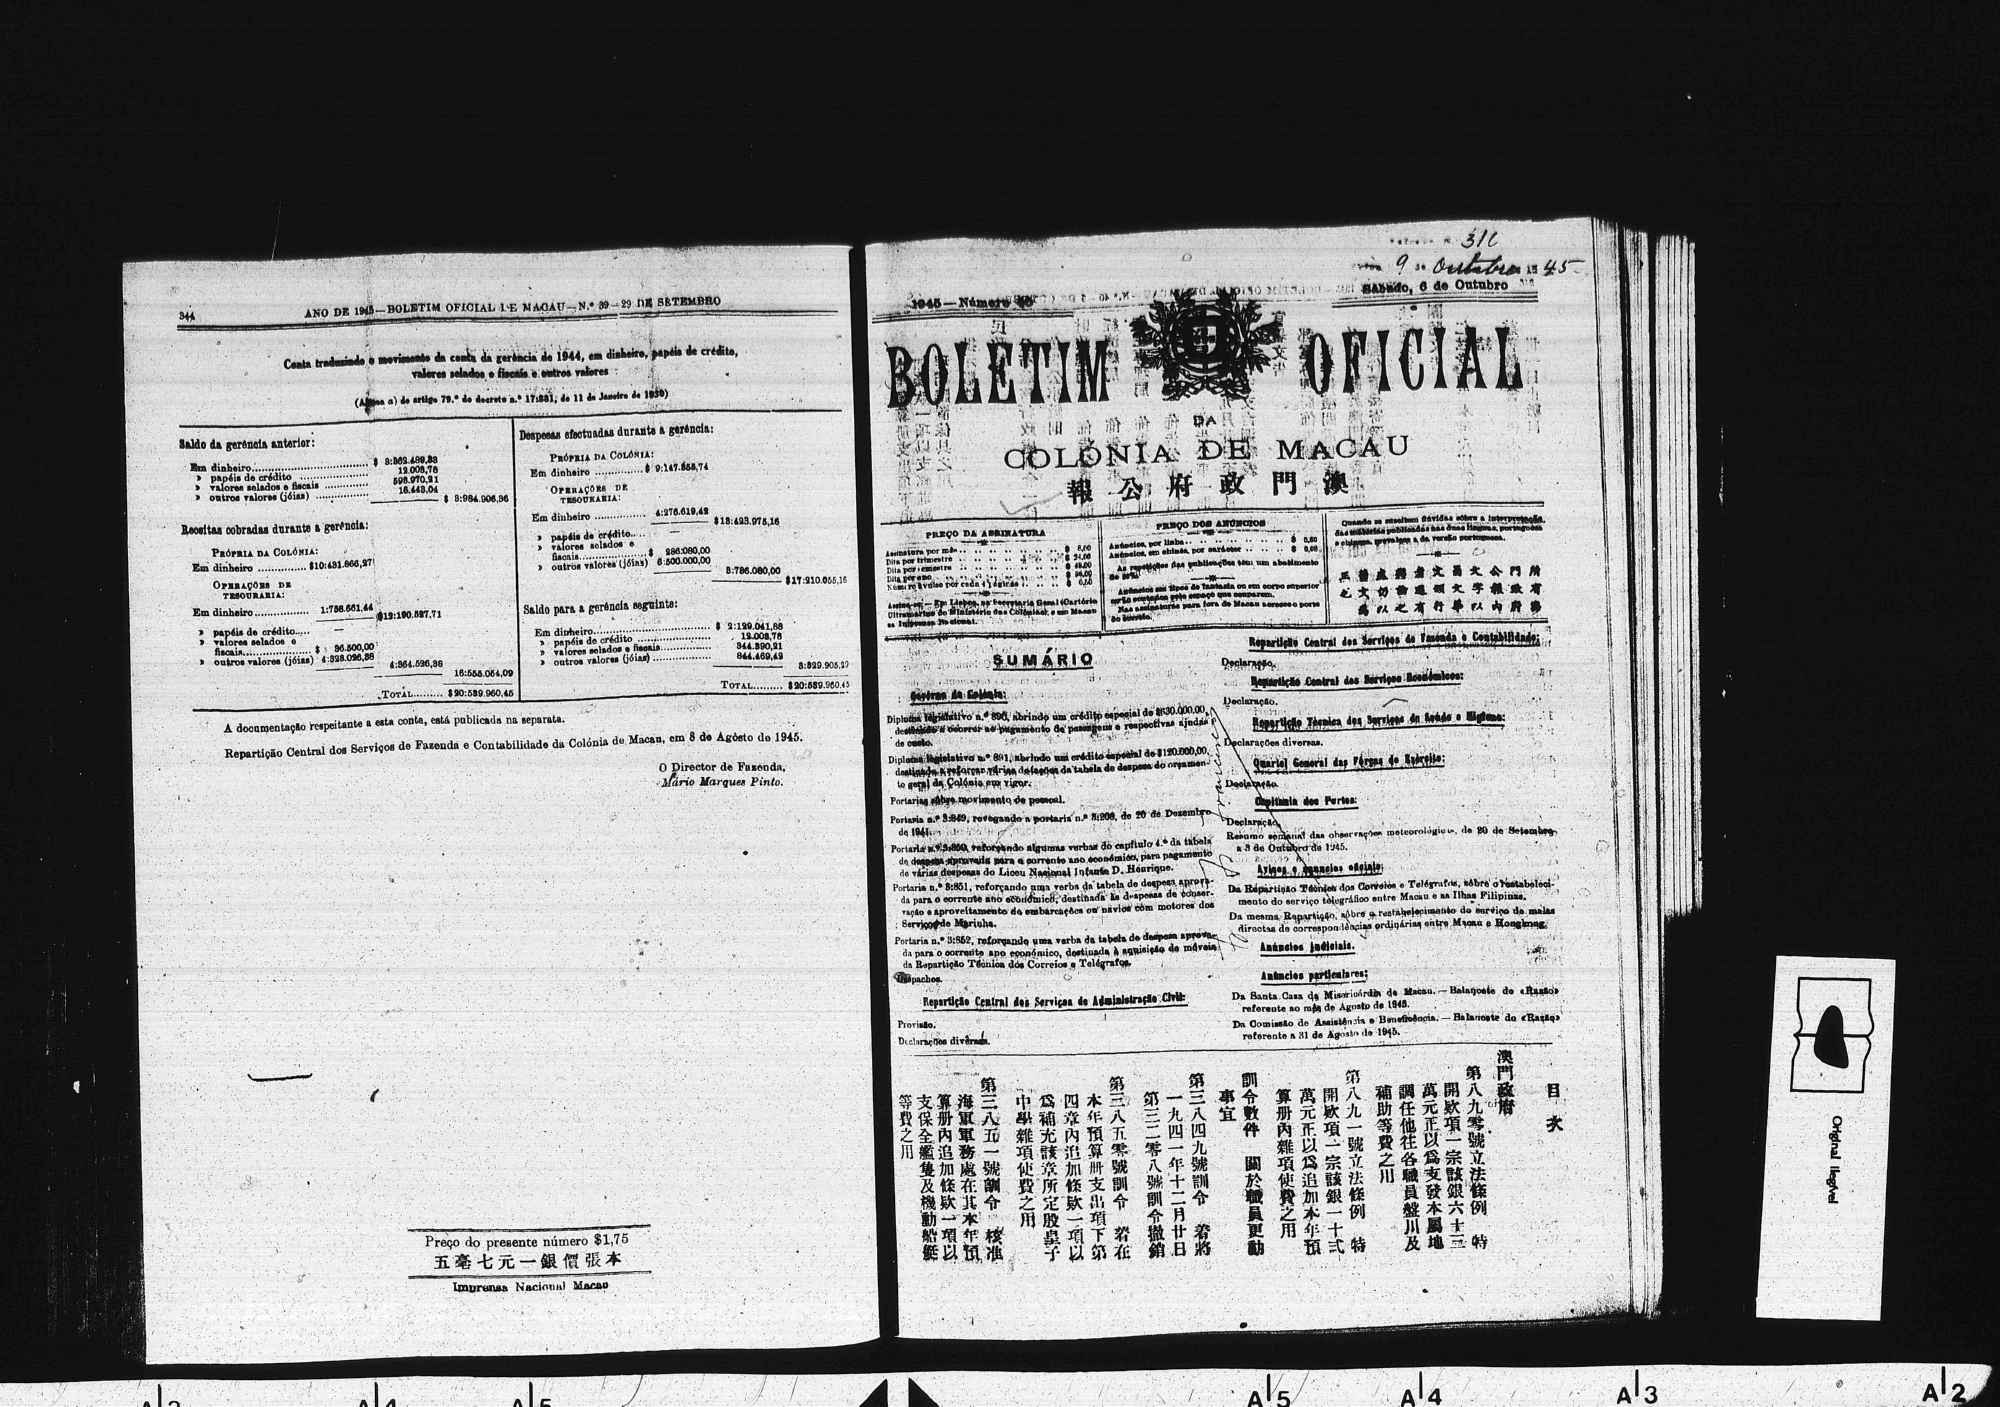 344
ANO DE 1945—BOLETIM OFICIAL DE MACAU—N.º 39—29 DE SETEMBRO
Conta traduzindo o movimento da conta da gerência de 1944, em dinheiro, papéis de crédito,
valores selados e fiscais e outros valores
(Alínea a) do artigo 79.º do decreto n.º 17:881, de 11 de Janeiro de 1930)
Saldo da gerência anterior:
Em dinheiro
» papéis de crédito 12.003,76
» valores selados e fiscais 598.970,21
» outros valores (jóias)
$ 3:984.906,36
Receitas cobradas durante a gerência:
PRÓPRIA DA COLÓNIA:
Em dinheiro $10:431.866,27
OPERAÇÕES DE
TESOURARIA:
Em dinheiro 1:758.661,44
$12:190.527,71
» papéis de crédito..... —
» valores selados e
fiscais $ 36.500,00
» outros valores (jóias) 4:328.026,38
4:364.526,38
16:555.054,09
TOTAL......... $20:539.960,45
Despesas efectuadas durante a gerência:
PRÓPRIA DA COLÓNIA:
Em dinheiro $ 9:147.355,74
OPERAÇÕES DE
TESOURARIA:
Em dinheiro 4:276.619,42
$13:423.975,16
» papéis de crédito.... —
» valores selados e
fiscais $ 286.080,00
» outros valores (jóias)
3:786.080,00
$17:210.055,16
Saldo para a gerência seguinte:
Em dinheiro $ 2:129.041,88
» papéis de crédito 12.003,76
» valores selados e fiscais 344.390,21
» outros valores (jóias) 844.469,42
3:329.905,29
TOTAL......... $20:539.960,45
A documentação respeitante a esta conta, está publicada na separata.
Repartição Central dos Serviços de Fazenda e Contabilidade da Colónia de Macau, em 8 de Agôsto de 1945.
O Director de Fazenda,
Mário Marques Pinto.
Preço do presente número $1,75
五毫七元一銀價張本
Imprensa Nacional Macau
312
9 de Outubro 1945
1945—Número 40
Sábado, 6 de Outubro
BOLETIM OFICIAL
DA
COLÓNIA DE MACAU
報公府政門澳
PREÇO DA ASSINATURA
Assinatura por mês
Dita por trimestre
Dita por semestre
Dita por ano
Número avulso por cada 4 páginas
Assina-se:—Em Lisboa, na Secretaria Geral (Cartório
Ultramarino do Ministério das Colónias), e em Macau
na Imprensa Nacional.
PREÇO DOS ANÚNCIOS
Anúncios, por linha
Anúncios, em chinês, por carácter
As repetições das publicações têm um abatimento
Anúncios em tipos de fantasia ou em corpo superior
serão contados pelo espaço que ocuparem.
Nas assinaturas para fora de Macau acresce o porte
do correio.
Quando se suscitem dúvidas sôbre a interpretação
das matérias publicadas nas duas línguas, portuguesa
e chinesa, prevalece a da versão portuguesa.
SUMÁRIO
Govêrno da Colónia:
Diploma legislativo n.º 890, abrindo um crédito especial de $630.000,00,
destinado a ocorrer ao pagamento de passagens e respectivas ajudas
de custo.
Diploma legislativo n.º 891, abrindo um crédito especial de $120.000,00,
destinado a reforçar várias dotações da tabela de despesa do orçamen-
to geral da Colónia em vigor.
Portarias sôbre movimento de pessoal.
Portaria n.º 3:849, revogando a portaria n.º 3:208, de 20 de Dezembro
de 1941.
Portaria n.º 3:850, reforçando algumas verbas do capítulo 4.º da tabela
de despesa aprovada para o corrente ano económico, para pagamento
de várias despesas do Liceu Nacional Infante D. Henrique.
Portaria n.º 3:851, reforçando uma verba da tabela de despesa aprova-
da para o corrente ano económico, destinada às despesas de conser-
vação e aproveitamento de embarcações ou navios com motores dos
Serviços de Marinha.
Portaria n.º 3:852, reforçando uma verba da tabela de despesa aprova-
da para o corrente ano económico, destinada à aquisição de móveis
da Repartição Técnica dos Correios e Telégrafos.
Despachos.
Repartição Central dos Serviços de Administração Civil:
Provisão.
Declarações diversas.
Repartição Central dos Serviços de Fazenda e Contabilidade:
Declaração.
Repartição Central dos Serviços Económicos:
Declaração.
Repartição Técnica dos Serviços de Saúde e Higiene:
Declarações diversas.
Quartel General das Fôrças do Exército:
Declaração.
Capitania dos Portos:
Declaração.
Resumo semanal das observações meteorológicas, de 20 de Setembro
a 3 de Outubro de 1945.
Avisos e anúncios oficiais:
Da Repartição Técnica dos Correios e Telégrafos, sôbre o restabeleci-
mento do serviço telegráfico entre Macau e as Ilhas Filipinas.
Da mesma Repartição, sôbre o restabelecimento do serviço de malas
directas de correspondências ordinárias entre Macau e Hongkong.
Anúncios judiciais.
Anúncios particulares:
Da Santa Casa da Misericórdia de Macau.—Balancete do «Razão»
referente ao mês de Agosto de 1945.
Da Comissão de Assistência e Beneficência.—Balancete do «Razão»
referente a 31 de Agosto de 1945.
目次
澳門政府
第八九零號立法條例 特
開欵項一宗該銀六十三
萬元正以爲支發本屬地
調任他往各職員盤川及
補助等費之用
第八九一號立法條例 特
開欵項一宗該銀一十弍
萬元正以爲追加本年預
算册內雜項使費之用
訓令數件 關於職員更動
事宜
第三八四九號訓令 着將
一九四一年十二月廿日
第三二零八號訓令撤銷
第三八五零號訓令 着在
本年預算册支出項下第
四章內追加條欵一項以
爲補充該章所定殷皇子
中學雜項使費之用
第三八五一號訓令 核准
海軍軍務處在其本年預
算册內追加條欵一項以
支保全艦隻及機動船艇
等費之用
Original ilegível
A3
A4
A5
A5
A4
A3
A2